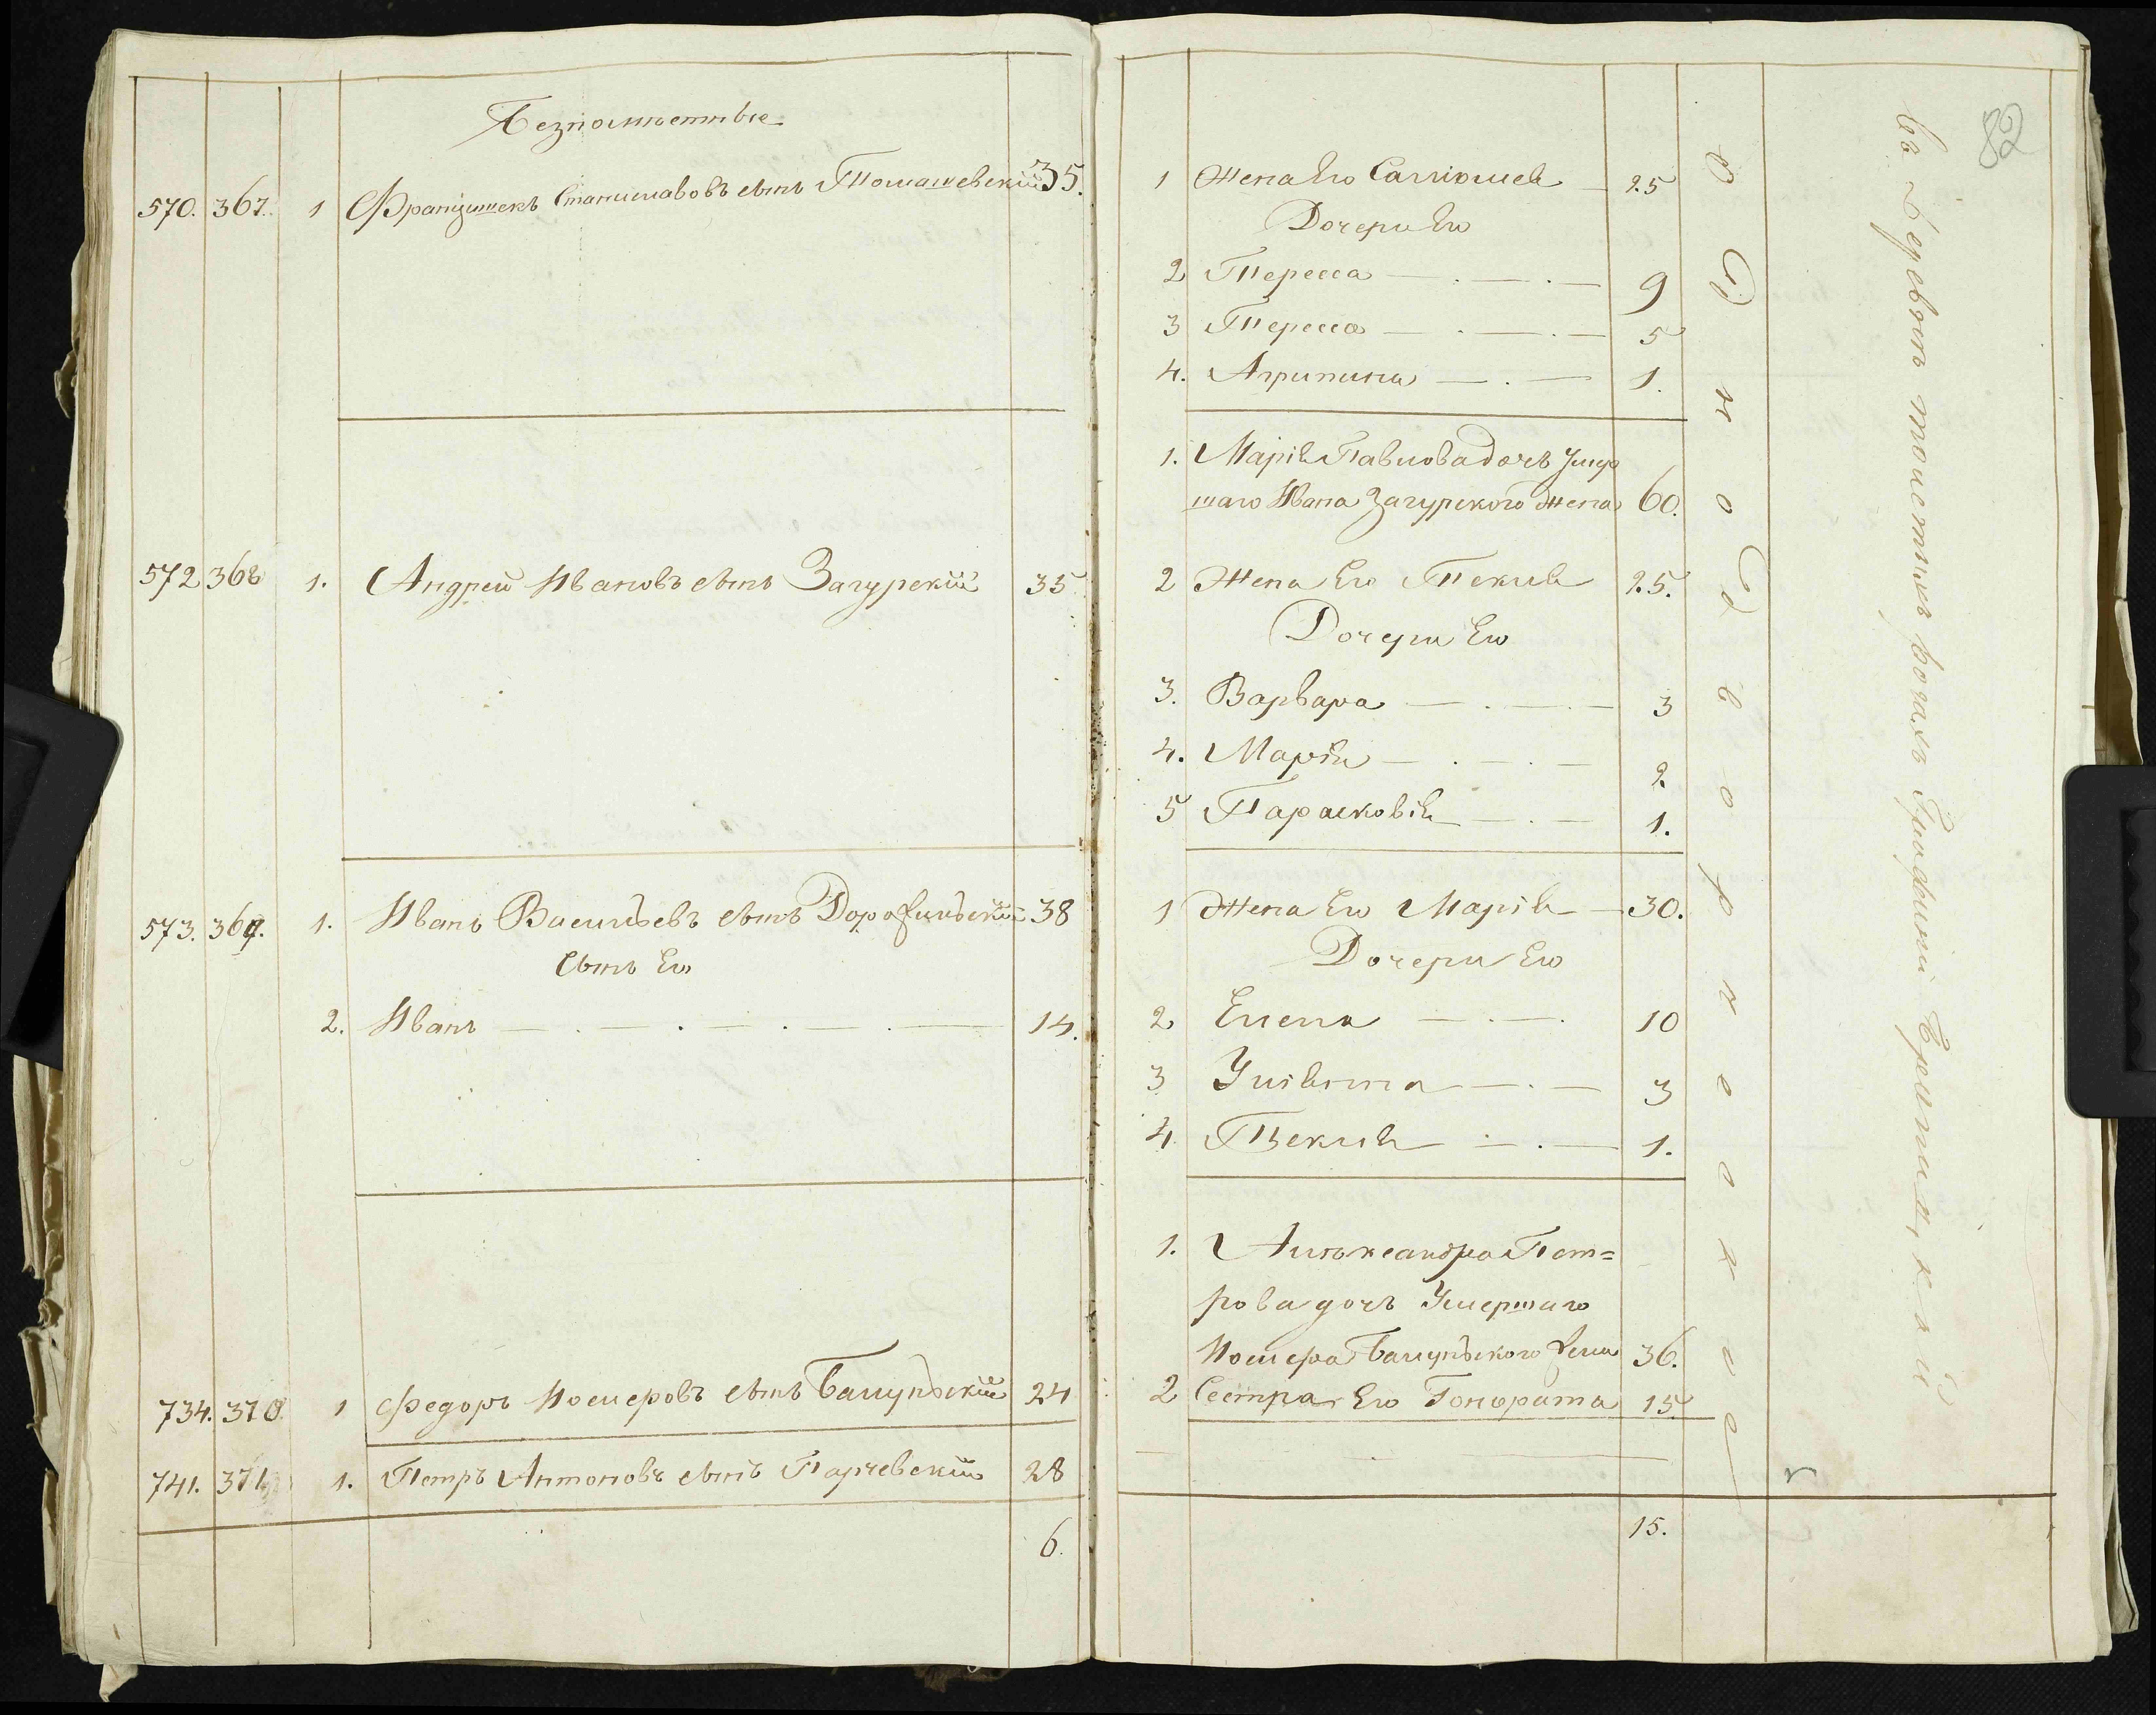 Безпомѣстные
570. 367. 1 Францишекъ Станиславовъ сынъ Томашевскій 35.
572 368 1. Андрей Ивановъ сынъ Загурскій 35
573. 369. 1. Иванъ Васильевъ сынъ Дорожинскій 38
сынъ Его
2. Иванъ 14.
734. 370. 1 Федоръ Іосифовъ сынъ 24
741. 371. 1. Петръ Антоновъ сынъ Парчевскій 28
6.
82
1 Жена Его Саломея 25
Дочери Его
2 Тересса 9
3 Тересса 5
4. Агрипина 1.
1. Марія Павлова дочь Умер
шаго Ивана Загурского Жена 60.
2 Жена Его Текля 25.
Дочери Его
3. Варвара 3
4. Марія 2.
5 Парасковія 1.
1 Жена Его Марія 30.
Дочери Его
2 Елена 10
3 Уліянна 3
4 Текля 1.
1. Алѣксандра Пет=
рова дочь Умершаго
жена 36.
2 Сестра Его Гонората 15
15.
однодворческое
въ Деревнѣ поместныхъ Графини